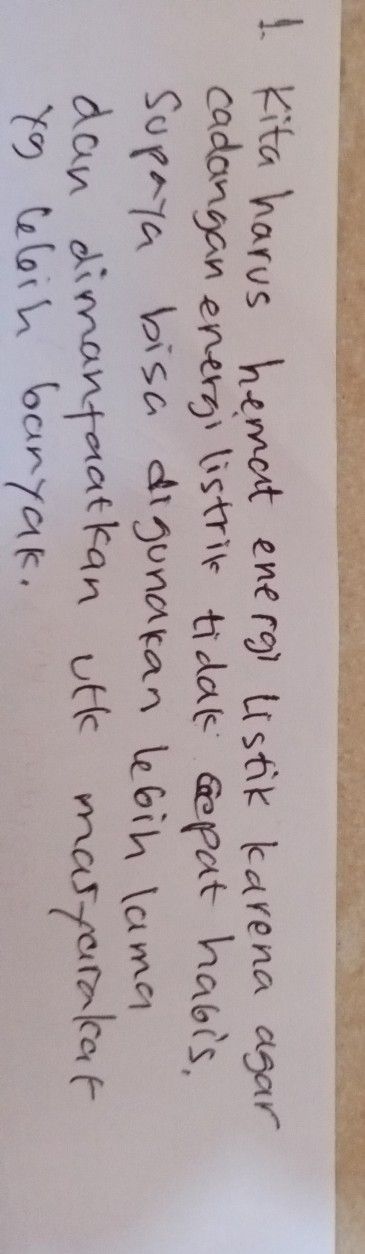 1. Kita harus hemat energi listik karena agar
cadangan energi listrik tidak cepat habis,
Supaya bisa digunakan lebih lama
dan dimanfaatkan utk masyarakat
yg lebih banyak.